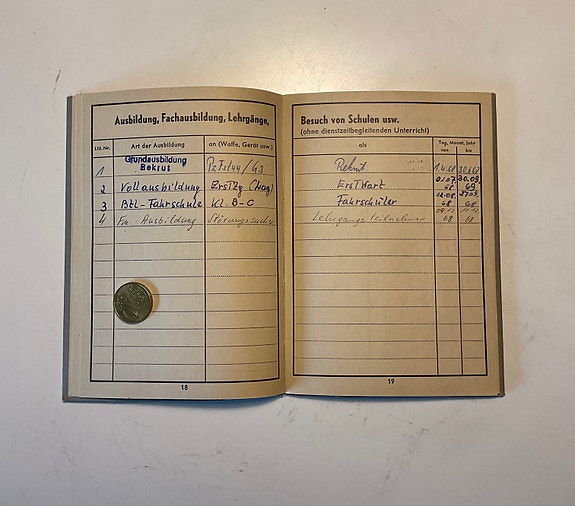 Ausbildung, Fachausbildung, Lehrgänge,
Lfd. Nr. Art der Ausbildung an (Waffe, Gerät usw.)
1 Grundausbildung
Rekrut
2 Vollausbildung
3 Btl-Fahrschule Kl. B-C
4 Fm-Ausbildung Störungssuche
18
Besuch von Schulen usw.
(ohne dienstzeitbegleitenden Unterricht)
als Tag, Monat, Jahr
von bis
Rekrut 1.4.68 30.6.68
01.07. 30.09.
68 69
Fahrschüler
68 68
Lehrgangsteilnehmer
68 68
19